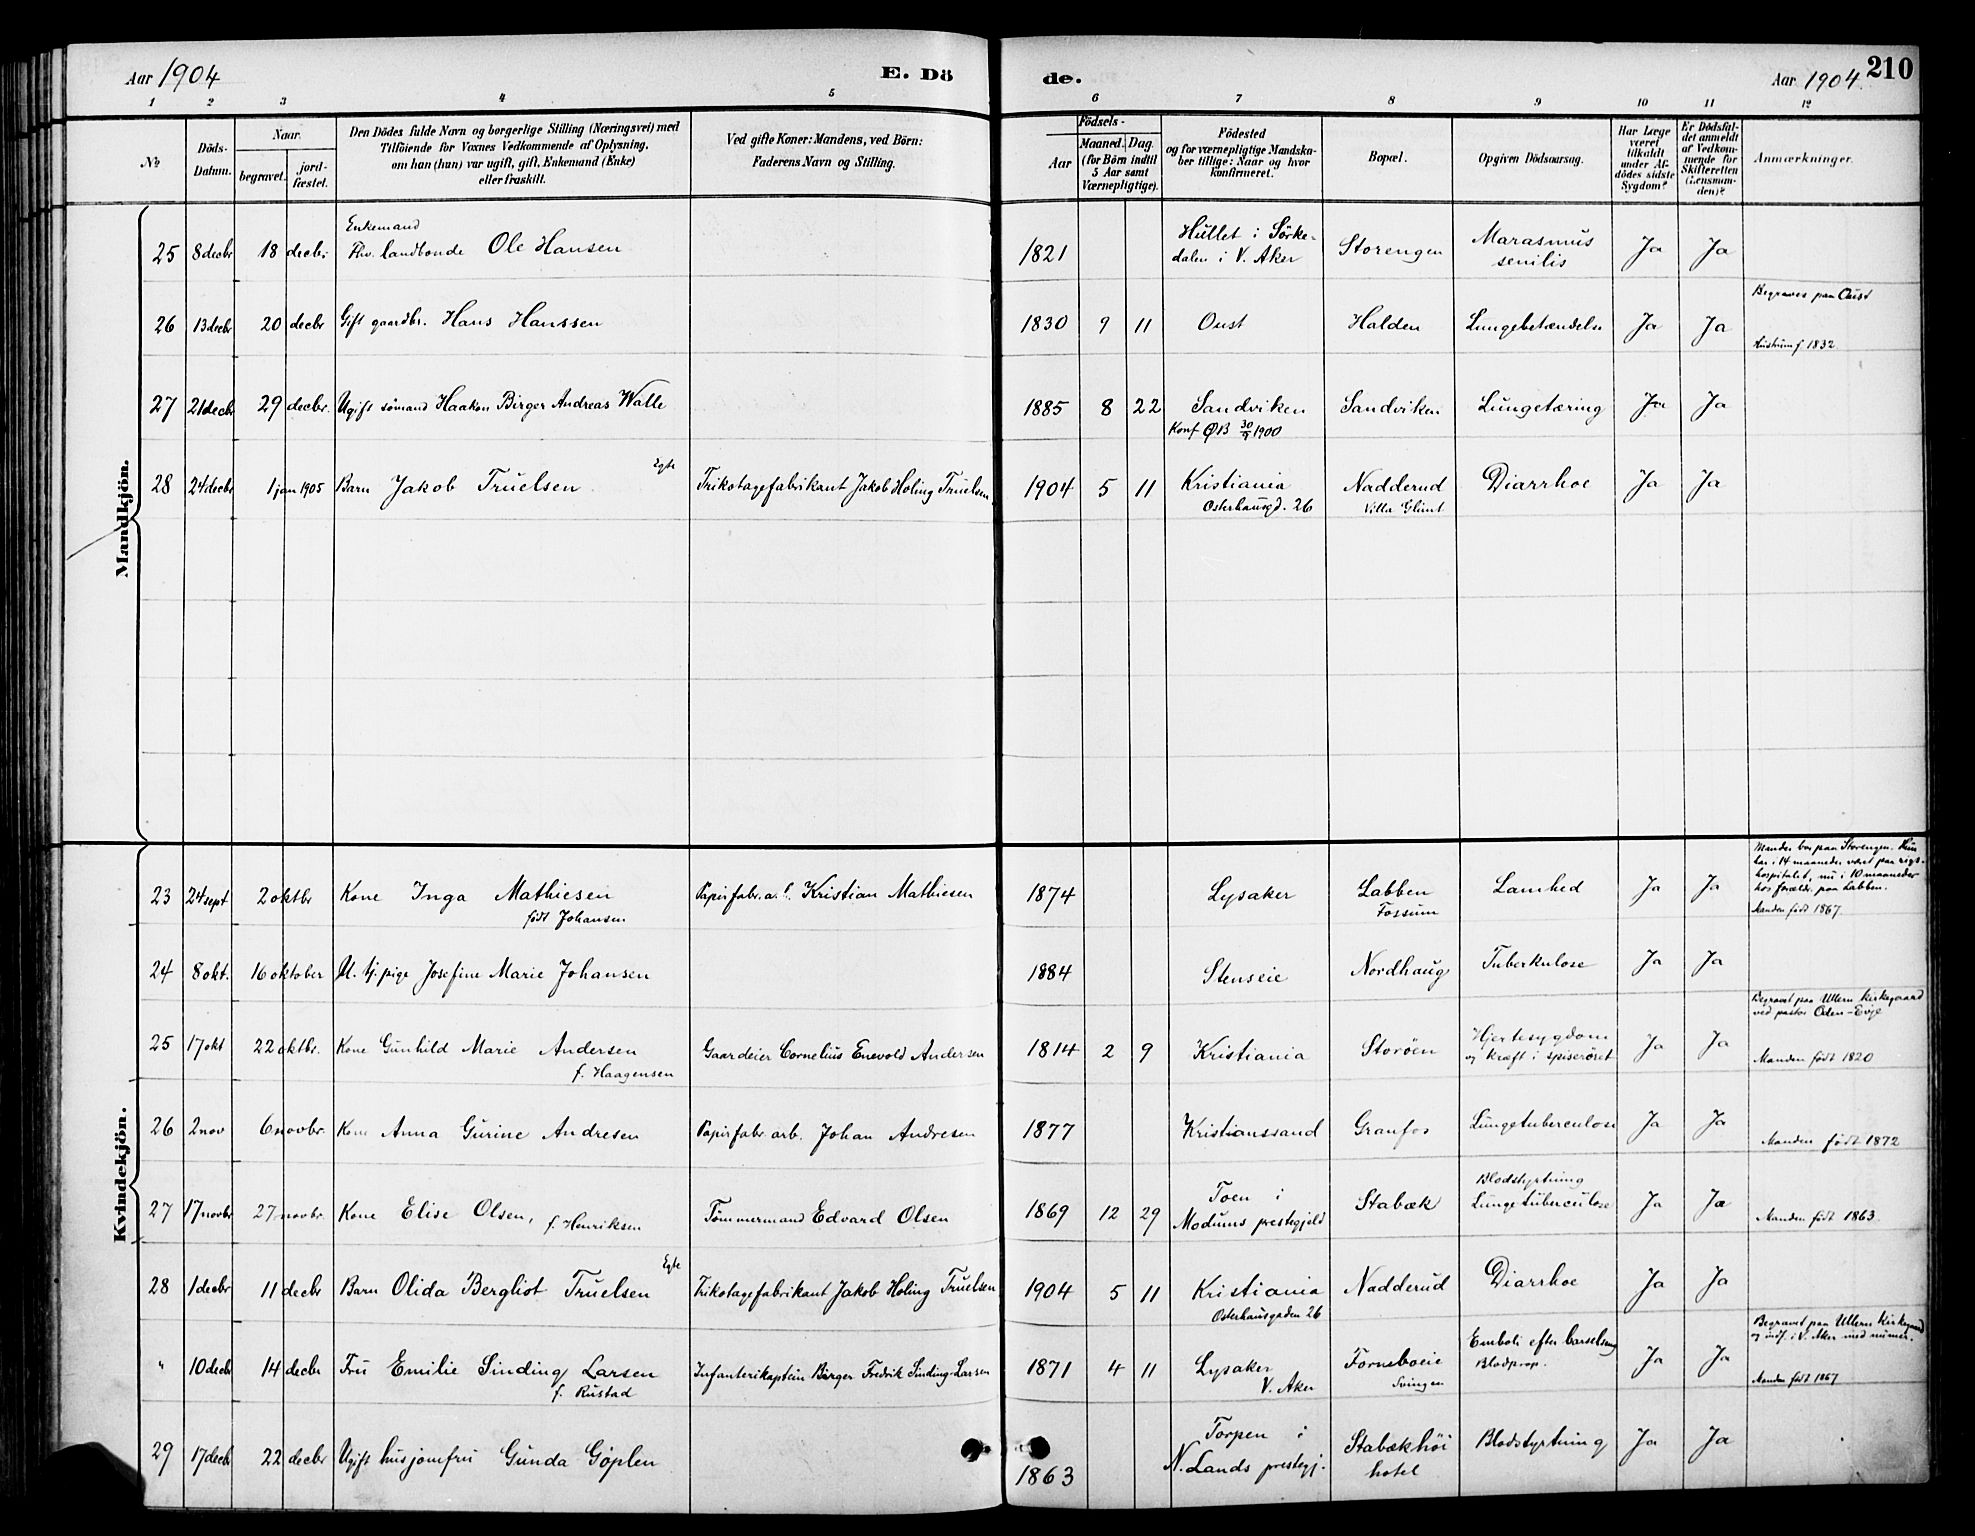 Aar 1904
E. Dö
de.
Aar 1904.
210
1 2 3 4 5 6 7 8 9 10 11 12
№
Döds-
Datum.
Naar
begravet.
jord-
fæstet.
Den Dödes fulde Navn og borgerlige Stilling (Næringsvei) med
Tilföiende for Voxnes Vedkommende af Oplysning,
om han (hun) var ugift, gift, Enkemand (Enke)
eller fraskilt.
Ved gifte Koner: Mandens, ved Börn:
Faderens Navn og Stilling.
Födsels-
Aar
Maaned.
Dag.
(for Börn indtil
5 Aar samt
Værnepligtige).
Födested
og for værnepligtige Mandska-
ber tillige: Naar og hvor
konfirmeret.
Bopæl.
Opgiven Dödsaarsag.
Har Læge
været
tilkaldt
under Af-
dödes sidste
Sygdom?
Er Dödsfal-
det anmeldt
af Vedkom-
mende for
Skifteretten
(Lensman-
den)?
Anmærkninger.
Mandkjön.
Enkemand
25 8 decbr 18 decbr. Fhv. landbonde Ole Hansen 1821 Hullet i Sörke-
dalen i V. Aker Storengen Marasmus
senilis Ja Ja
26 13 decbr 20 decbr Gift gaardbr. Hans Hanssen 1830 9 11 Oust Halden Lungebetændelse Ja Ja Begraves paa Oust
Hustrun f 1832.
27 21 decbr 29 decbr. Ugift sömand Haakon Birger Andreas Walle 1885 8 22 Sandviken Sandviken Lungetæring Ja Ja
Konf ØB 30/9 1900
28 24 decbr 1 jan 1905 Barn Jakob Truelsen Egte Trikotagefabrikant Jakob Holing Truelsen 1904 5 11 Kristiania Nadderud Diarrhoe Ja Ja
Osterhausgd. 26 Villa Glimt
Kvindekjön.
23 24 sept 2 oktbr Kone Inga Mathiesen Papirfabr.a. Kristian Mathiesen 1874 Lysaker Labben Lamhed Ja Ja
født Johansen Fossum
Manden bor paa Storengen. Hun
har i 14 maaneder været paa rigs-
hospitalet, nu i 10 maaneder
hos forældr. paa Labben.
Manden født 1867.
24 8 okt. 16 oktober U. tj. pige Josefine Marie Johansen 1884 Stenseie Nordhaug Tuberkulose Ja Ja
25 17 okt 22 oktbr. Kone Gunhild Marie Andersen Gaardeier Cornelius Enevold Andersen 1814 2 9 Kristiania Storöen Hjertesygdom
og kræft i spiserøret Ja Ja
f. Haagensen
Begravet paa Ullern Kirkegaard
ved pastor Oden-Evje
Manden født 1820
26 2 nov 6 novbr. Kone Anna Gurine Andresen Papirfabr. arb. Johan Andresen 1877 Kristianssand Granfos Lungetuberculose Ja Ja Manden født 1872
27 17 novbr 27 novbr. Kone Elise Olsen, f. Henriksen Tömmermand Edvard Olsen 1869 12 29 Toen i
Modums prestegjeld Stabæk Blodstyrtning
Lungetuberculose Ja Ja Manden født 1863.
28 1 decbr 11 decbr Barn Olida Bergliot Truelsen Egte Trikotagefabrikant Jakob Holing Truelsen 1904 5 11 Kristiania Nadderud Diarrhoe Ja Ja
Osterhausgaden 26
" 10 decbr 14 decbr Fru Emilie Sinding Larsen Infanterikaptein Birger Fredrik Sinding-Larsen 1871 4 11 Lysaker
V. Aker Forneboeie
Svingen Emboli efter barselseng
Blodprop. Ja Ja
f. Rustad
Begravet paa Ullern Kirkegaard
og indf. i V. Aker med numer.
Manden født 1867
29 17 decbr 22 decbr Ugift husjomfru Gunda Gøplen 1863 Torpen i
N. Lands prestegj. Stabækhöi
hotel Blodstyrtning Ja Ja